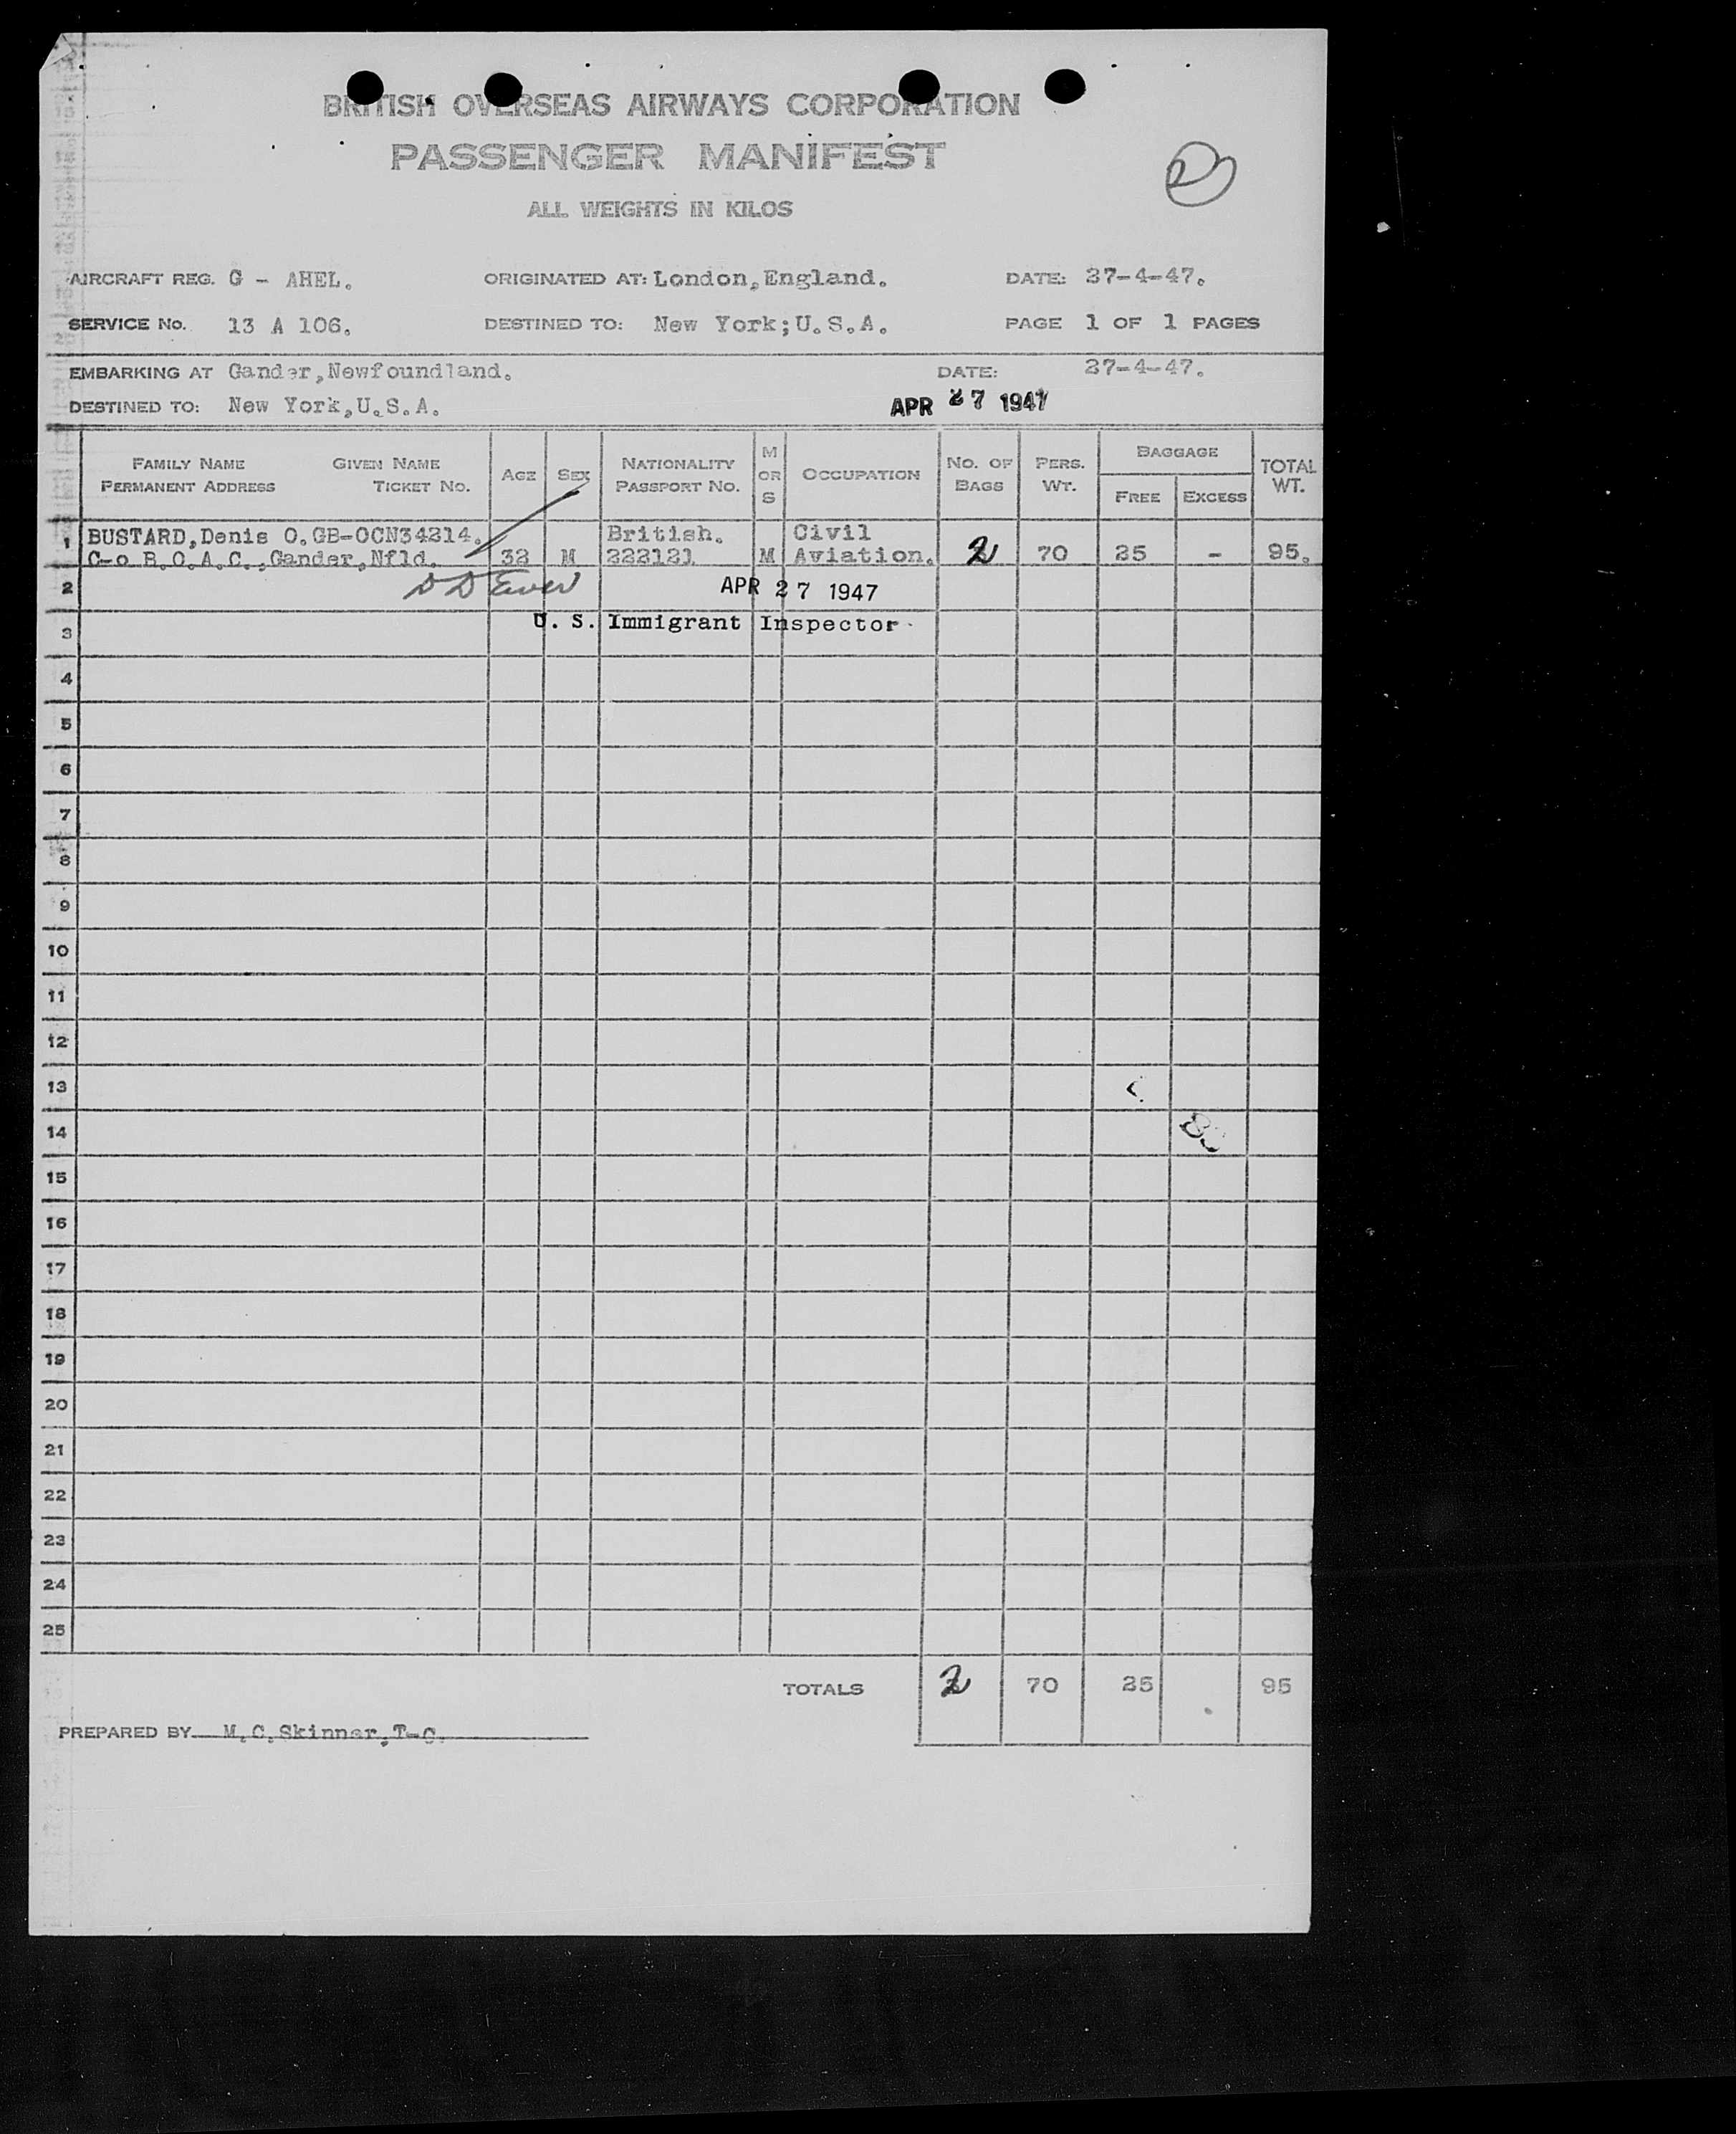 BRITISH OVERSEAS AIRWAYS CORPORATION
PASSENGER MANIFEST
ALL WEIGHTS IN KILOS
2
AIRCRAFT REG. G - AHEL. ORIGINATED AT: London, England. DATE: 27-4-47.
SERVICE No. 13 A 106. DESTINED TO: New York; U.S.A. PAGE 1 OF 1 PAGES
EMBARKING AT Gander, Newfoundland. DATE: 27-4-47.
DESTINED TO: New York, U.S.A. APR 27 1947
FAMILY NAME GIVEN NAME AGE SEX NATIONALITY M OR S OCCUPATION NO. OF BAGS PERS. WT. BAGGAGE TOTAL WT.
PERMANENT ADDRESS TICKET NO. PASSPORT NO. FREE EXCESS
1 BUSTARD, Denis O. GB-OCN34214. British. Civil
C-o B.O.A.C., Gander, Nfld. 32 M 222121 M Aviation. 2 70 25 - 95.
2 APR 27 1947
3 U. S. Immigrant Inspector
4
5
6
7
8
9
10
11
12
13
14
15
16
17
18
19
20
21
22
23
24
25
TOTALS 2 70 25 95
PREPARED BY M.C. Skinner, T-O.